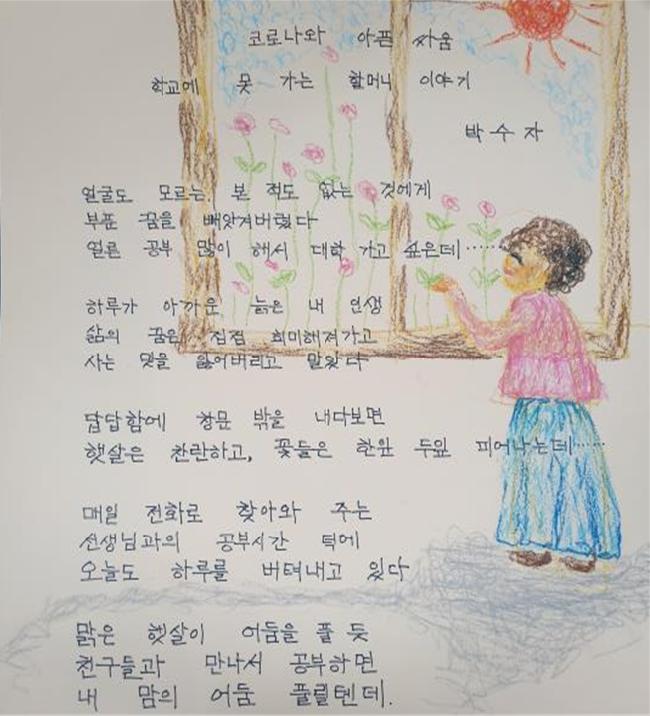 코로나와 아픈 싸움
학교에 못 가는 할머니 이야기
박수자
얼굴도 모르는, 본 적도 없는 것에게
부푼 꿈을 빼앗겨버렸다
얼른 공부 많이 해서 대학 가고 싶은데······
하루가 아까운 늙은 내 인생
삶의 꿈은 점점 희미해져가고
사는 맛을 잃어버리고 말았다
답답함에 창문 밖을 내다보면
햇살은 찬란하고, 꽃들은 한잎 두잎 피어나는데······
매일 전화로 찾아와 주는
선생님과의 공부시간 덕에
오늘도 하루를 버텨내고 있다
맑은 햇살이 어둠을 풀 듯
친구들과 만나서 공부하면
내 맘의 어둠 풀릴텐데.